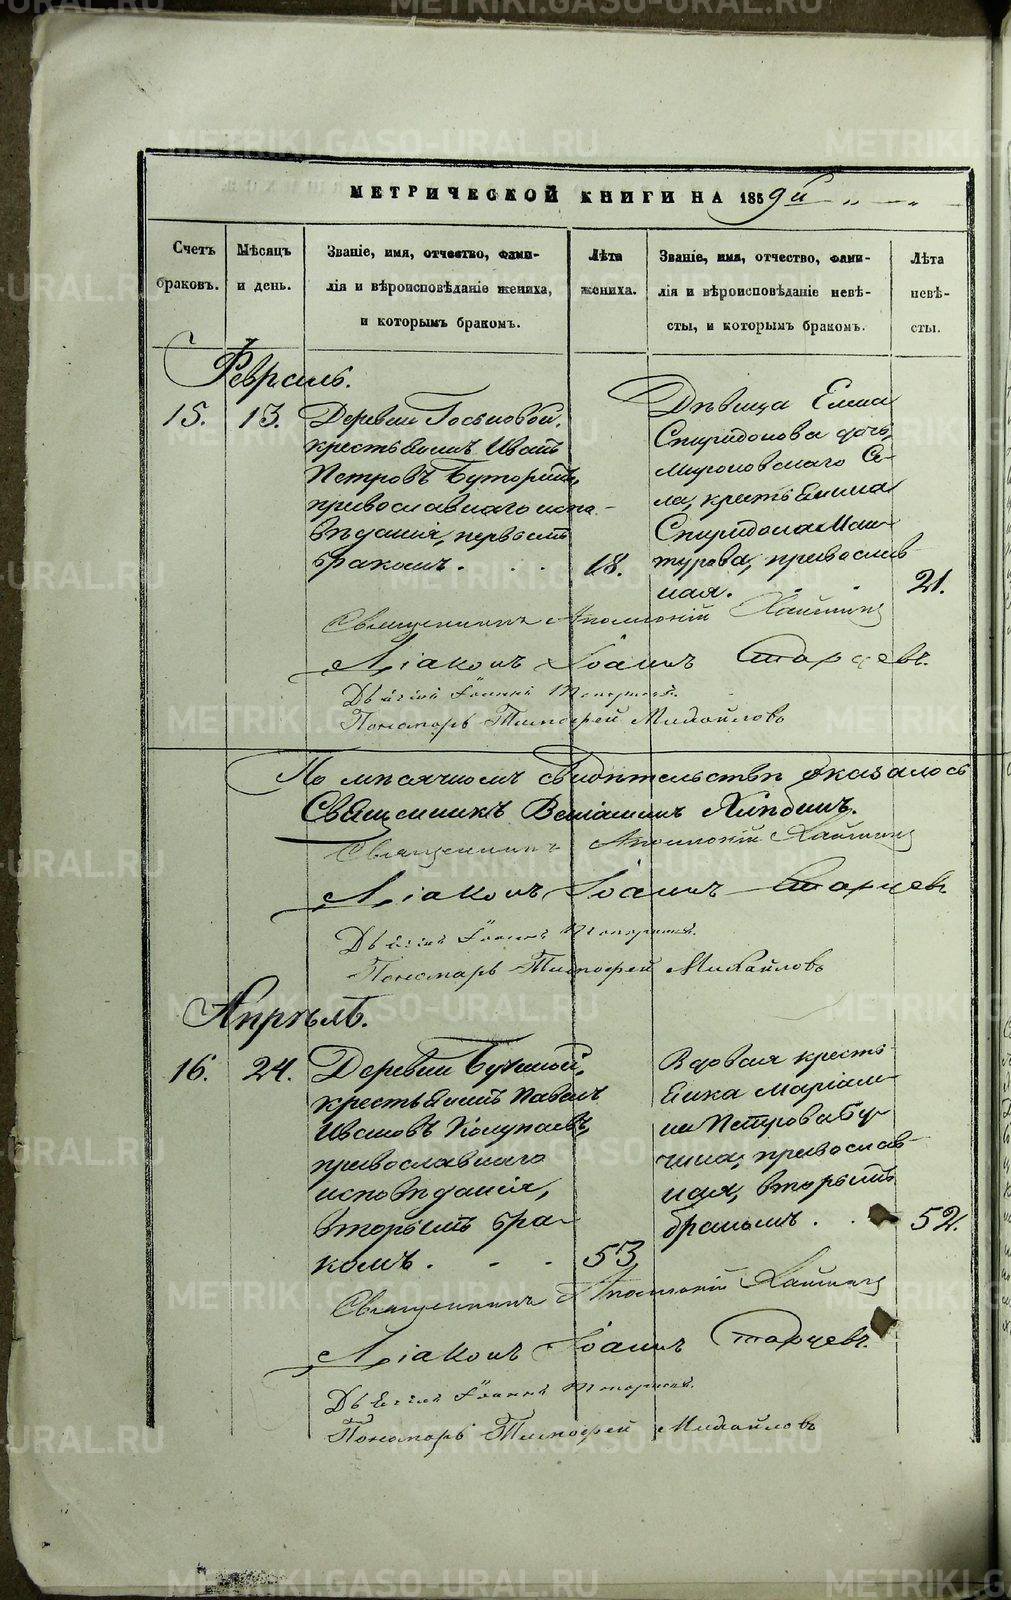 МЕТРИЧЕСКОЙ КНИГИ НА 1859й
Счетъ браковъ.
Мѣсяцъ и день.
Званіе, имя, отчество, фами-
лія и вѣроисповѣданіе жениха,
и которымъ бракомъ.
Лѣта жениха.
Званіе, имя, отчество, фами-
лія и вѣроисповѣданіе невѣ-
сты, и которымъ бракомъ.
Лѣта невѣ-
сты.
Февраль.
15. 13.
Деревни
крестьянинъ Иванъ
Петровъ Буторинъ,
православнаго испо-
вѣданія, первымъ
бракомъ. 18.
Дѣвица Елена
Спиридонова дочь,
Мироновскаго Се-
ла, крестьянина
Спиридона Ман-
турова, православ
ная. 21.
Священникъ
Діаконъ Іоаннъ Старцевъ.
Іоаннъ
Пономарь Тимофей Михайловъ
По мѣсячномъ свидѣтельствѣ оказалось
Священникъ Веніаминъ
Священникъ
Діаконъ Іоаннъ Старцевъ
Іоаннъ
Пономарь Тимофей Михайловъ
Апрѣль.
16. 24.
Деревни Бучиной,
крестьянинъ Павелъ
Ивановъ Колупаевъ,
православнаго
исповѣданія,
вторымъ бра-
комъ. 53
Вдовая кресть
янка Маріам-
на Петрова Бу-
чина, православ-
ная, вторымъ
бракомъ. 52.
Священникъ
Діаконъ Іоаннъ Старцевъ.
Іоаннъ
Пономарь Тимофей Михайловъ
METRIKI.GASO-URAL.RU